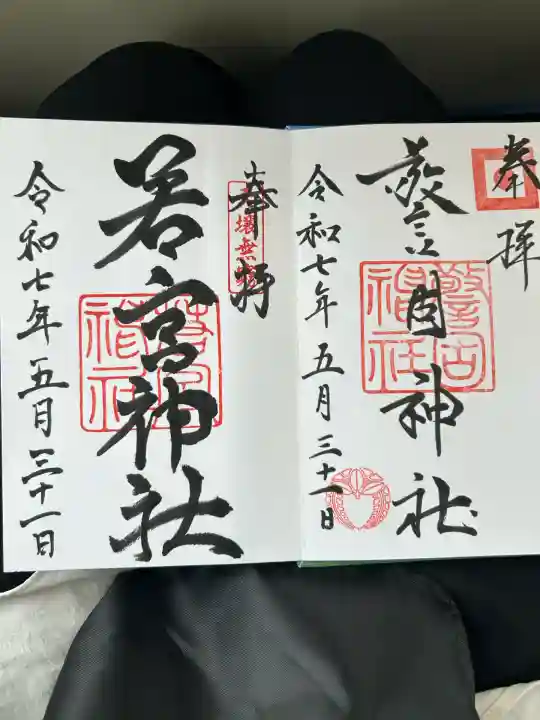 奉拝
警固神社
令和七年五月三十一日
警固
神社
奉拝
若宮神社
令和七年五月三十一日